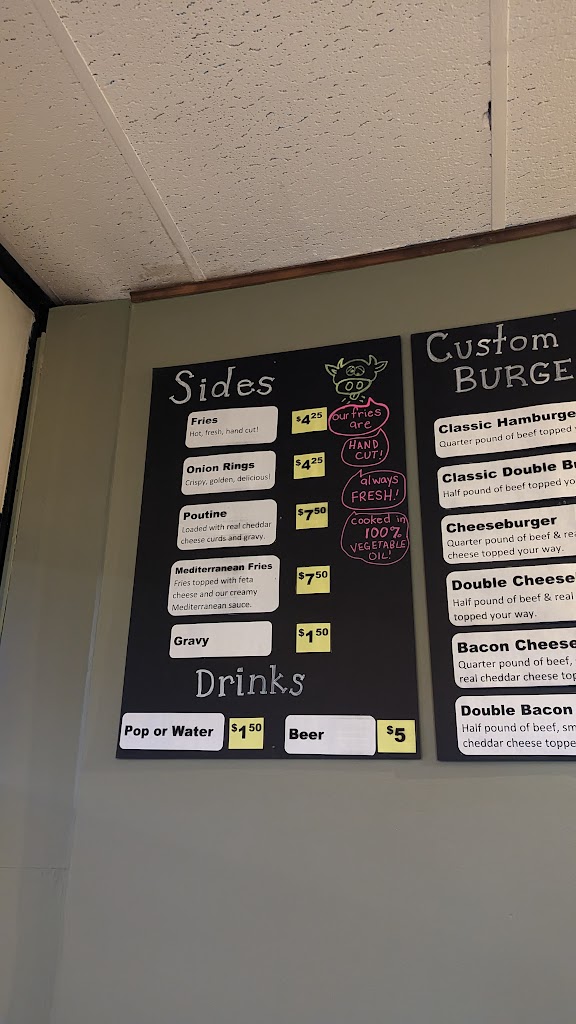 Sides
Fries
Hot, fresh, hand cut!
$4.25
Onion Rings
Crispy, golden, delicious!
$4.25
Poutine
Loaded with real cheddar
cheese curds and gravy.
$7.50
Mediterranean Fries
Fries topped with feta
cheese and our creamy
Mediterranean sauce.
$7.50
Gravy
$1.50
our fries
are
HAND
CUT!
always
FRESH!
cooked in
100%
VEGETABLE
OIL!
Drinks
Pop or Water
$1.50
Beer
$5
Custom
BURGE
Classic Hamburge
Quarter pound of beef topped
Classic Double Bu
Half pound of beef topped yo
Cheeseburger
Quarter pound of beef & rea
cheese topped your way.
Double Cheese
Half pound of beef & real
topped your way.
Bacon Cheese
Quarter pound of beef,
real cheddar cheese top
Double Bacon
Half pound of beef, sm
cheddar cheese toppe